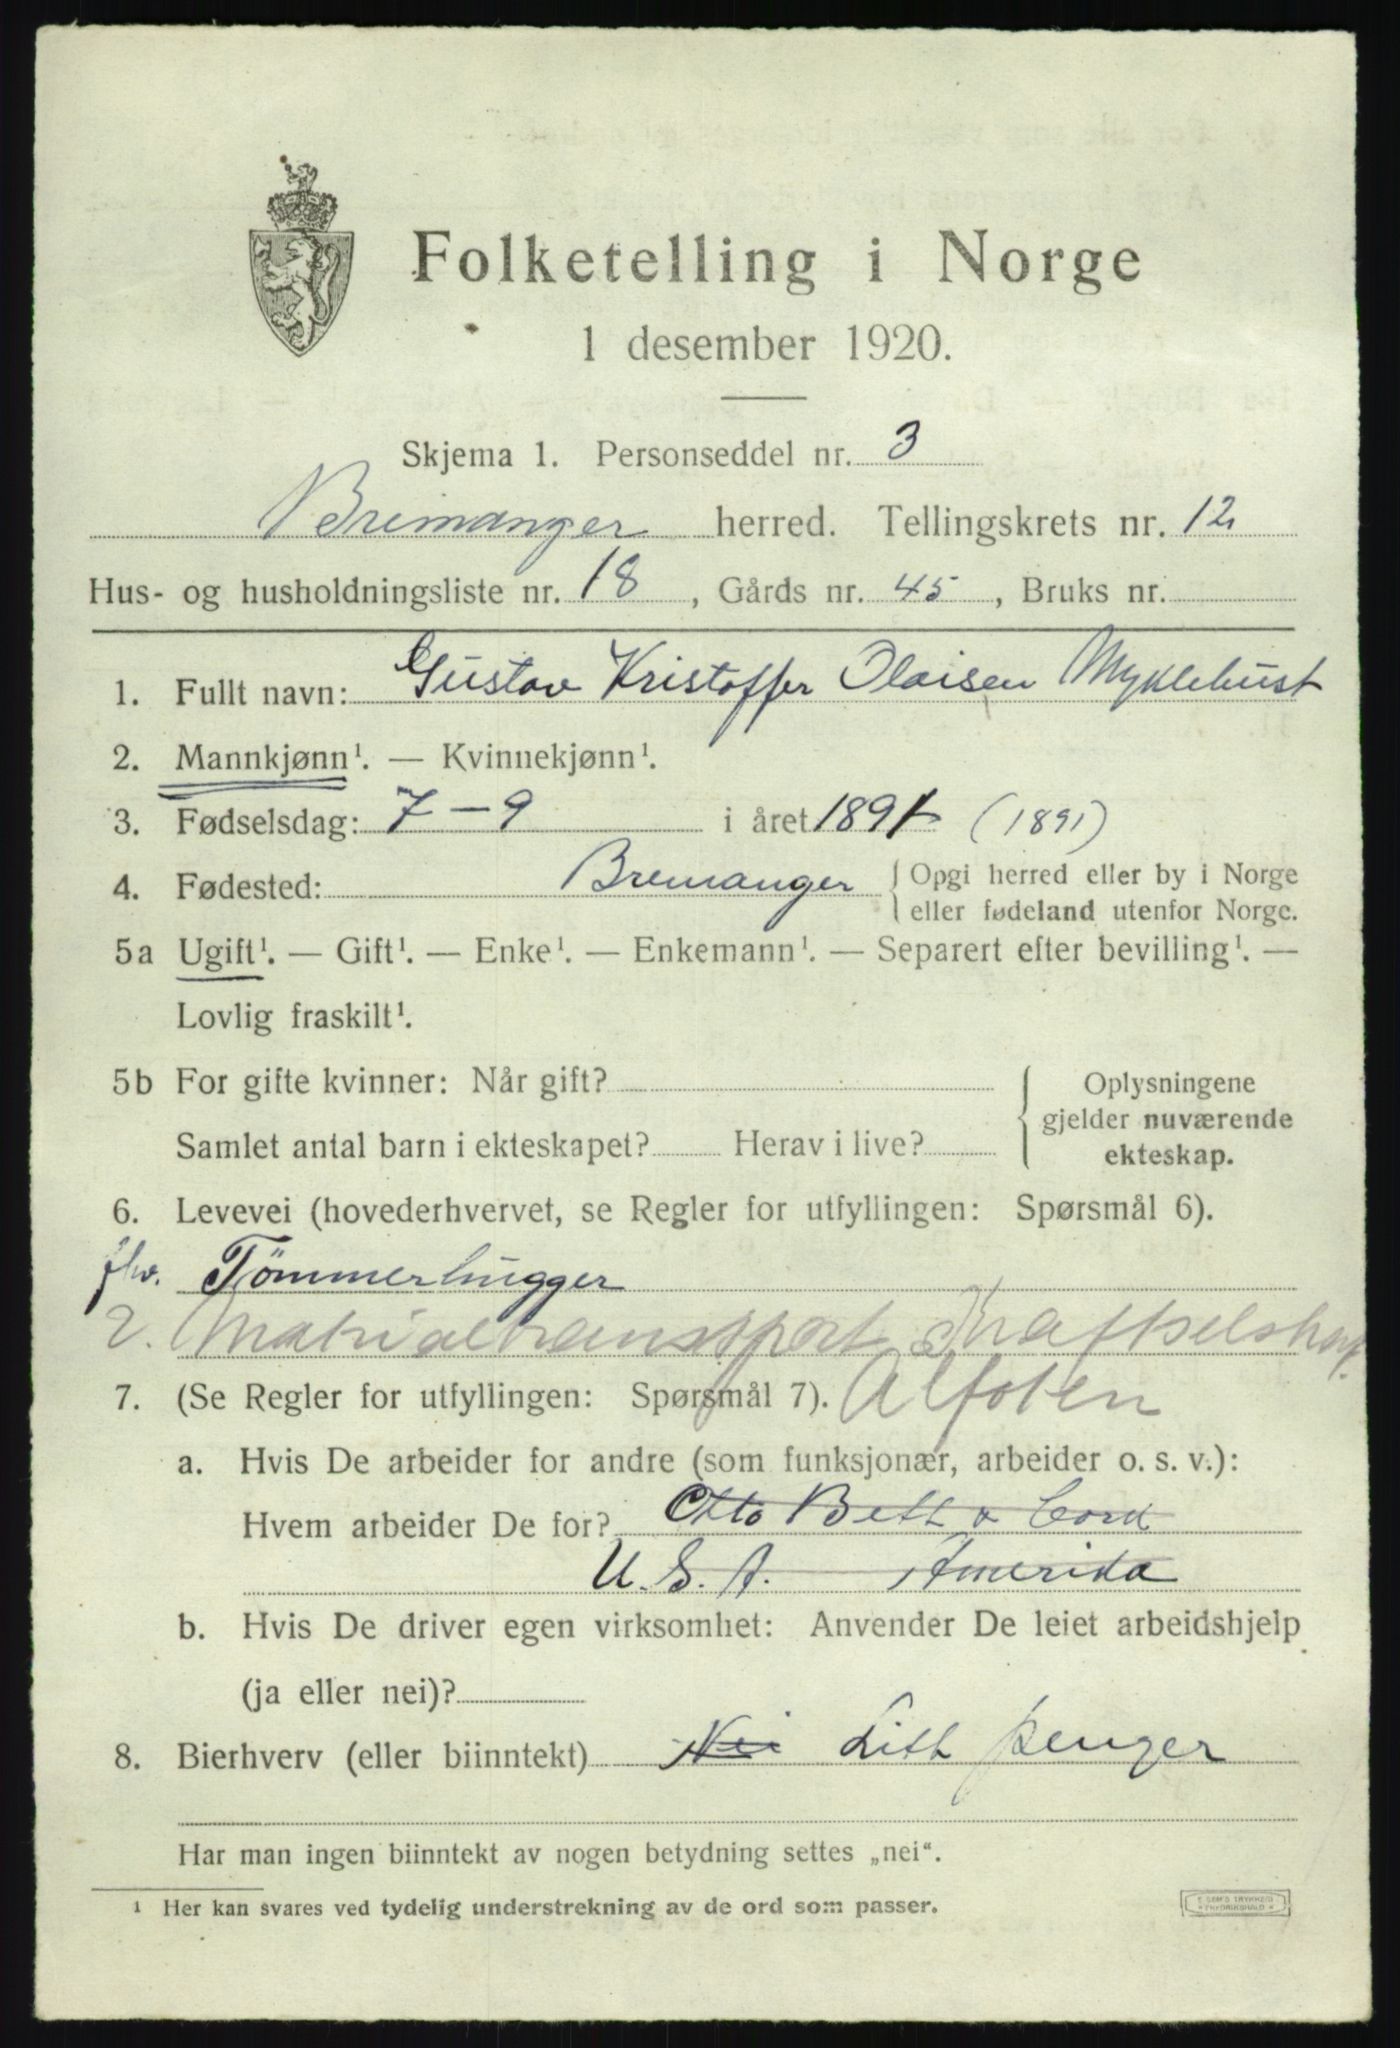 Folketelling i Norge
1 desember 1920.
Skjema 1. Personseddel nr. 3
Bremanger herred. Tellingskrets nr. 12
Hus- og husholdningsliste nr. 18, Gårds nr. 45, Bruks nr.
1. Fullt navn: Gustav Kristoffer Olaisen Myklebust
2. Mannkjønn¹. — Kvinnekjønn¹.
3. Fødselsdag: 7 – 9 i året 1891 (1891)
4. Fødested: Bremanger { Opgi herred eller by i Norge
eller fødeland utenfor Norge.
5a Ugift¹. — Gift¹. — Enke¹. — Enkemann¹. — Separert efter bevilling¹. —
Lovlig fraskilt¹.
5b For gifte kvinner: Når gift? Oplysningene
gjelder nuværende
Samlet antal barn i ekteskapet? Herav i live?
ekteskap.
6. Levevei (hovederhvervet, se Regler for utfyllingen: Spørsmål 6).
fhv. Tömmerhugger
2. Matrialtransport Kraftselskap.
7. (Se Regler for utfyllingen: Spørsmål 7). Alfoten
a. Hvis De arbeider for andre (som funksjonær, arbeider o. s. v.):
Hvem arbeider De for? Otto Bett &
U. S. A. Amerika
b. Hvis De driver egen virksomhet: Anvender De leiet arbeidshjelp
(ja eller nei)?
8. Bierhverv (eller biinntekt) Nei Litt penger
Har man ingen biinntekt av nogen betydning settes „nei“.
¹ Her kan svares ved tydelig understrekning av de ord som passer.